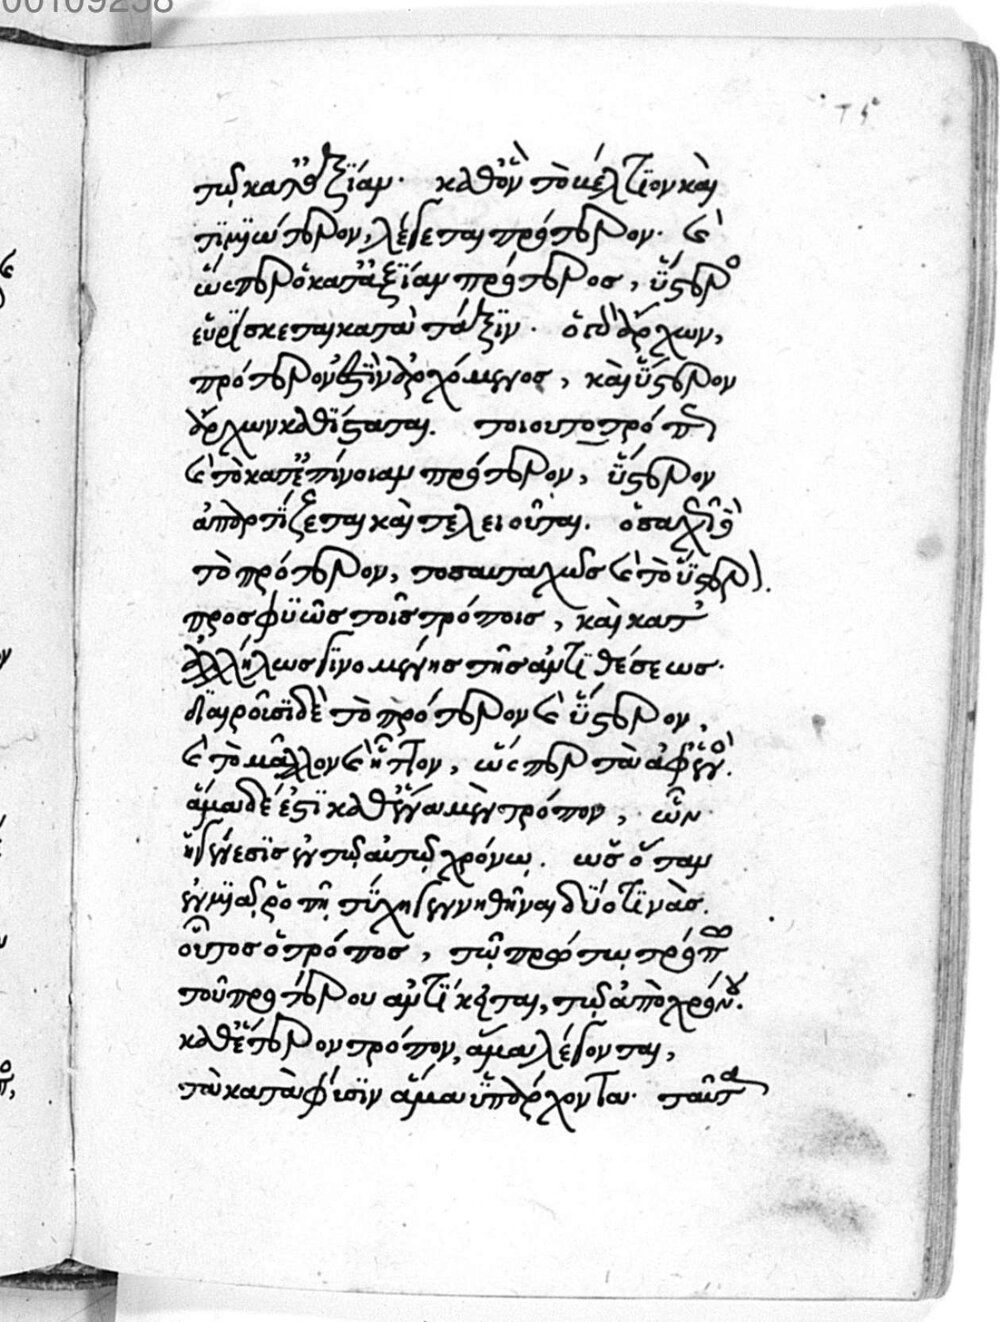 00109258
τῷ κατ' ἀξίαν. καθ' ὃν τὸ βέλτιον καὶ
τιμιώτερον, λέγεται πρότερον. καὶ
ὥσπερ ὁ κατ' ἀξίαν πρότερος, ὕστερο
εὑρίσκεται κατὰ τάξιν. ὅτε ὁ ἄρχων,
πρότερον ἀρχόμενος, καὶ ὕστερον
ἄρχων καθίσταται. τοιουτοτρόπ
καὶ τὸ κατ' ἐπίνοιαν πρότερον, ὕστερον
ἀπαρτίζεται καὶ τελειοῦται. ὁσαχῶς
τὸ πρότερον, τοσαυταχῶς καὶ τὸ ὕστερ.
προσφυῶς τοῖς τρόποις, καὶ κατ'
ἀλλήλως γινομένης τῆς ἀντιθέσεως.
διαιροῦσι δὲ τὸ πρότερον καὶ ὕστερον,
καὶ τὸ μᾶλλον καὶ ἧττον, ὥσπερ τὰ
ἅμα δέ ἐστι καθ' ἕνα μὲν τρόπον, ὧν
ἡ γένεσις ἐν τῷ αὐτῷ χρόνῳ. ὡς ὅταν
ἐν μιᾷ ῥοπῇ τύχῃ γεννηθῆναι δύο τινὰς.
οὗτος ὁ τρόπος, τῷ πρώτῳ τρόπ
τοῦ προτέρου ἀντίκειται, τῷ ἀπὸ χρόνου.
καθ' ἕτερον τρόπον, ἅμα λέγονται,
τὰ κατὰ φύσιν ἅμα ὑπάρχοντα. ταῦτα